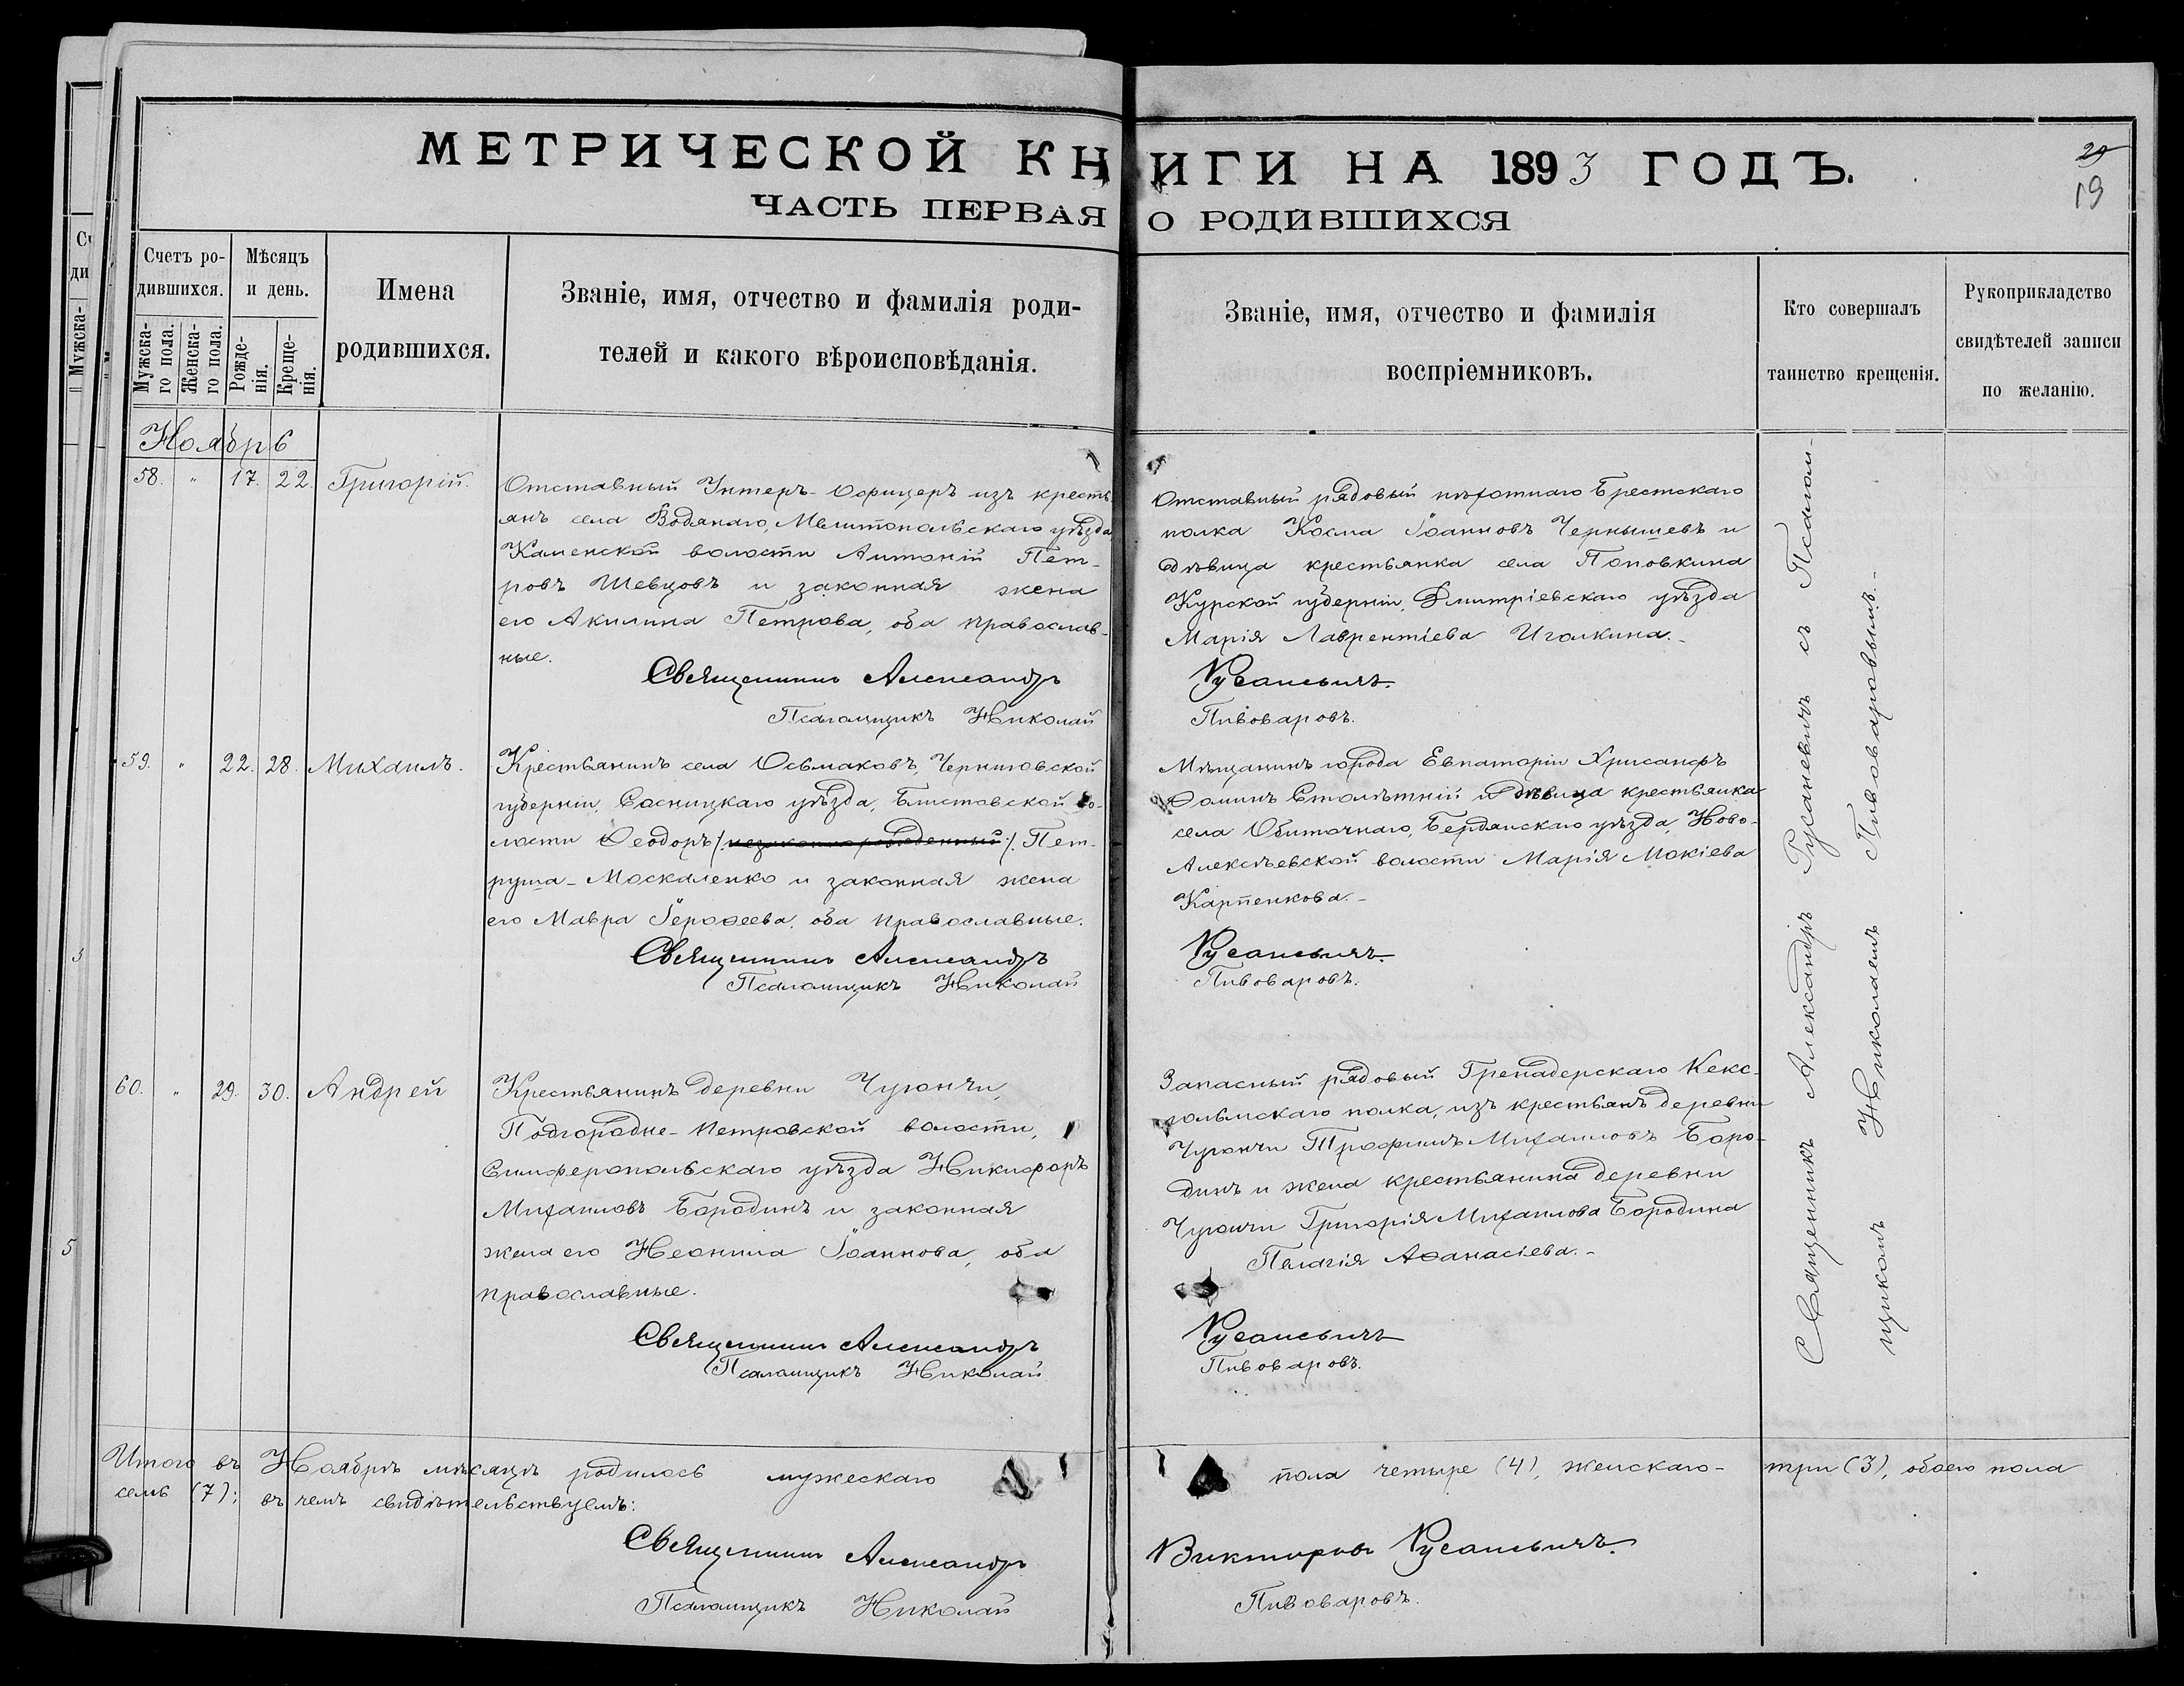 МЕТРИЧЕСКОЙ КНИГИ НА 1893 ГОДЪ.
29
19
ЧАСТЬ ПЕРВАЯ О РОДИВШИХСЯ
Счетъ ро-
дившихся.
Мужска-
го пола.
Женска-
го пола.
Мѣсяцъ
и день.
Рожде-
нія.
Креще-
нія.
Имена
родившихся.
Званіе, имя, отчество и фамилія роди-
телей и какого вѣроисповѣданія.
Званіе, имя, отчество и фамилія
воспріемниковъ.
Кто совершалъ
таинство крещенія.
Рукоприкладство
свидѣтелей записи
по желанію.
Ноябрь
58. " 17. 22. Григорій.
Отставный Унтеръ-Офицеръ изъ кресть
янъ села Водянаго, Мелитопольскаго уѣзда
Каменской волости Антоній Пет-
ровъ Шевцовъ и законная жена
его Акилина Петрова, оба православ-
ные.
Отставный рядовый пѣхотнаго Брестскаго
полка Косма Іоанновъ Чернышевъ и
дѣвица крестьянка села Поповкина
Курской губерніи, Дмитріевскаго уѣзда
Марія Лаврентіева Иголкина.-
Священникъ Александръ Русаневичъ.
Псаломщикъ Николай Пивоваровъ.
59. " 22. 28. Михаилъ.
Крестьянинъ села Осьмаковъ, Черниговской
губерніи, Сосницкаго уѣзда, Блистовской во-
лости Ѳеодоръ /незаконнорожденный/. Пет-
руша-Москаленко и законная жена
его Мавра Іероѳеева, оба православные.
Мѣщанинъ города Евпаторіи Хрисанфъ
Ѳоминъ Столѣтній и дѣвица крестьянка
села Обиточнаго, Бердянскаго уѣзда, Ново-
Алексѣевской волости Марія Мокіева
Карпенкова.-
Священникъ Александръ Русаневичъ.
Псаломщикъ Николай Пивоваровъ.
60. " 29. 30. Андрей
Крестьянинъ деревни Чуюнчи,
Подгородне-Петровской волости,
Симферопольскаго уѣзда Никифоръ
Михаиловъ Бородинъ и законная
жена его Неонила Іоаннова, оба
православные.
Запасный рядовый Гренадерскаго Кекс-
гольмскаго полка, изъ крестьянъ деревни
Чуюнчи Трофимъ Михаиловъ Боро-
динъ и жена крестьянина деревни
Чуюнчи Григорія Михаилова Бородина
Пелагія Аѳанасіева.-
Священникъ Александръ Русаневичъ
Псаломщикъ Николай Пивоваровъ.
Священникъ Александръ Русаневичъ съ Псалом-
щикомъ Николаемъ Пивоваровымъ.-
Итого въ Ноябрѣ мѣсяцѣ родилось мужескаго пола четыре (4), женскаго- три (3), обоего пола
семь (7); въ чемъ свидѣтельствуемъ:
Священникъ Александръ Викторовъ Русаневичъ.
Псаломщикъ Николай Пивоваровъ.